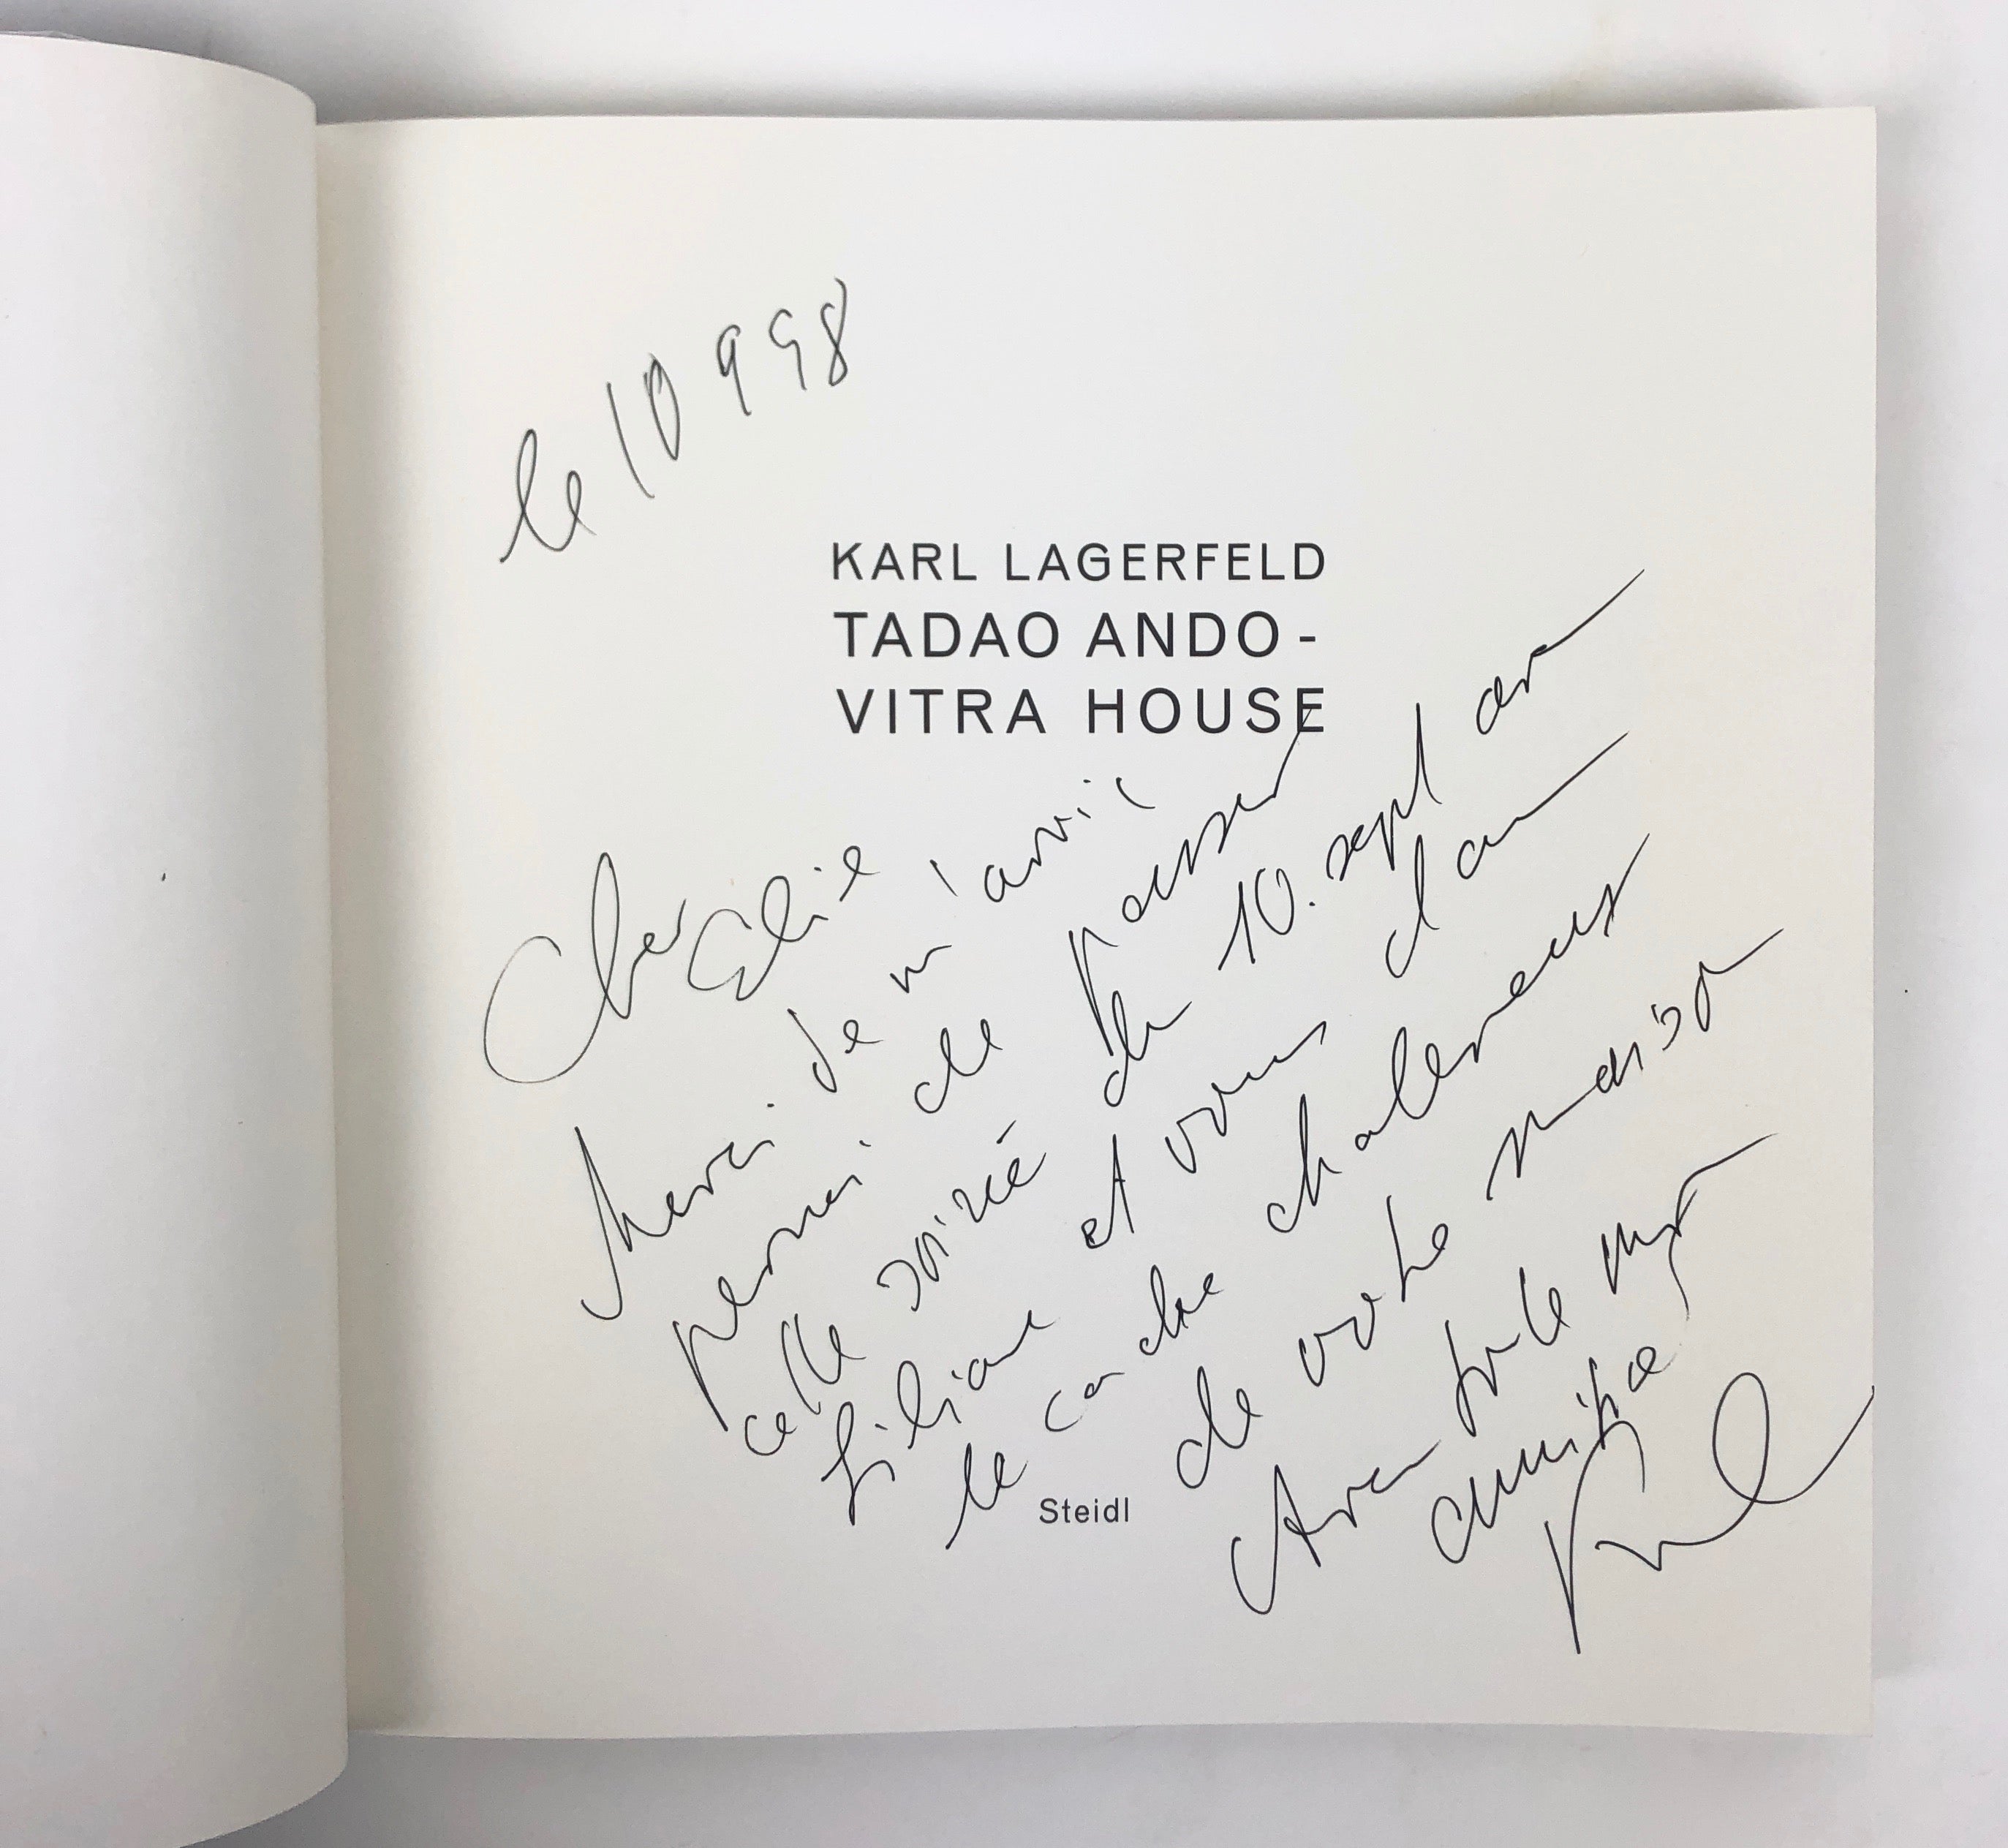 le 10 9 98
KARL LAGERFELD
TADAO ANDO -
VITRA HOUSE
Cher Elie
Merci de m'avoir
permi de passer
cette soirée du 10. sept avec
Liliane et vous dans
le cadre chaleureux
de votre maison
Avec toute mon
amitié
Karl
Steidl